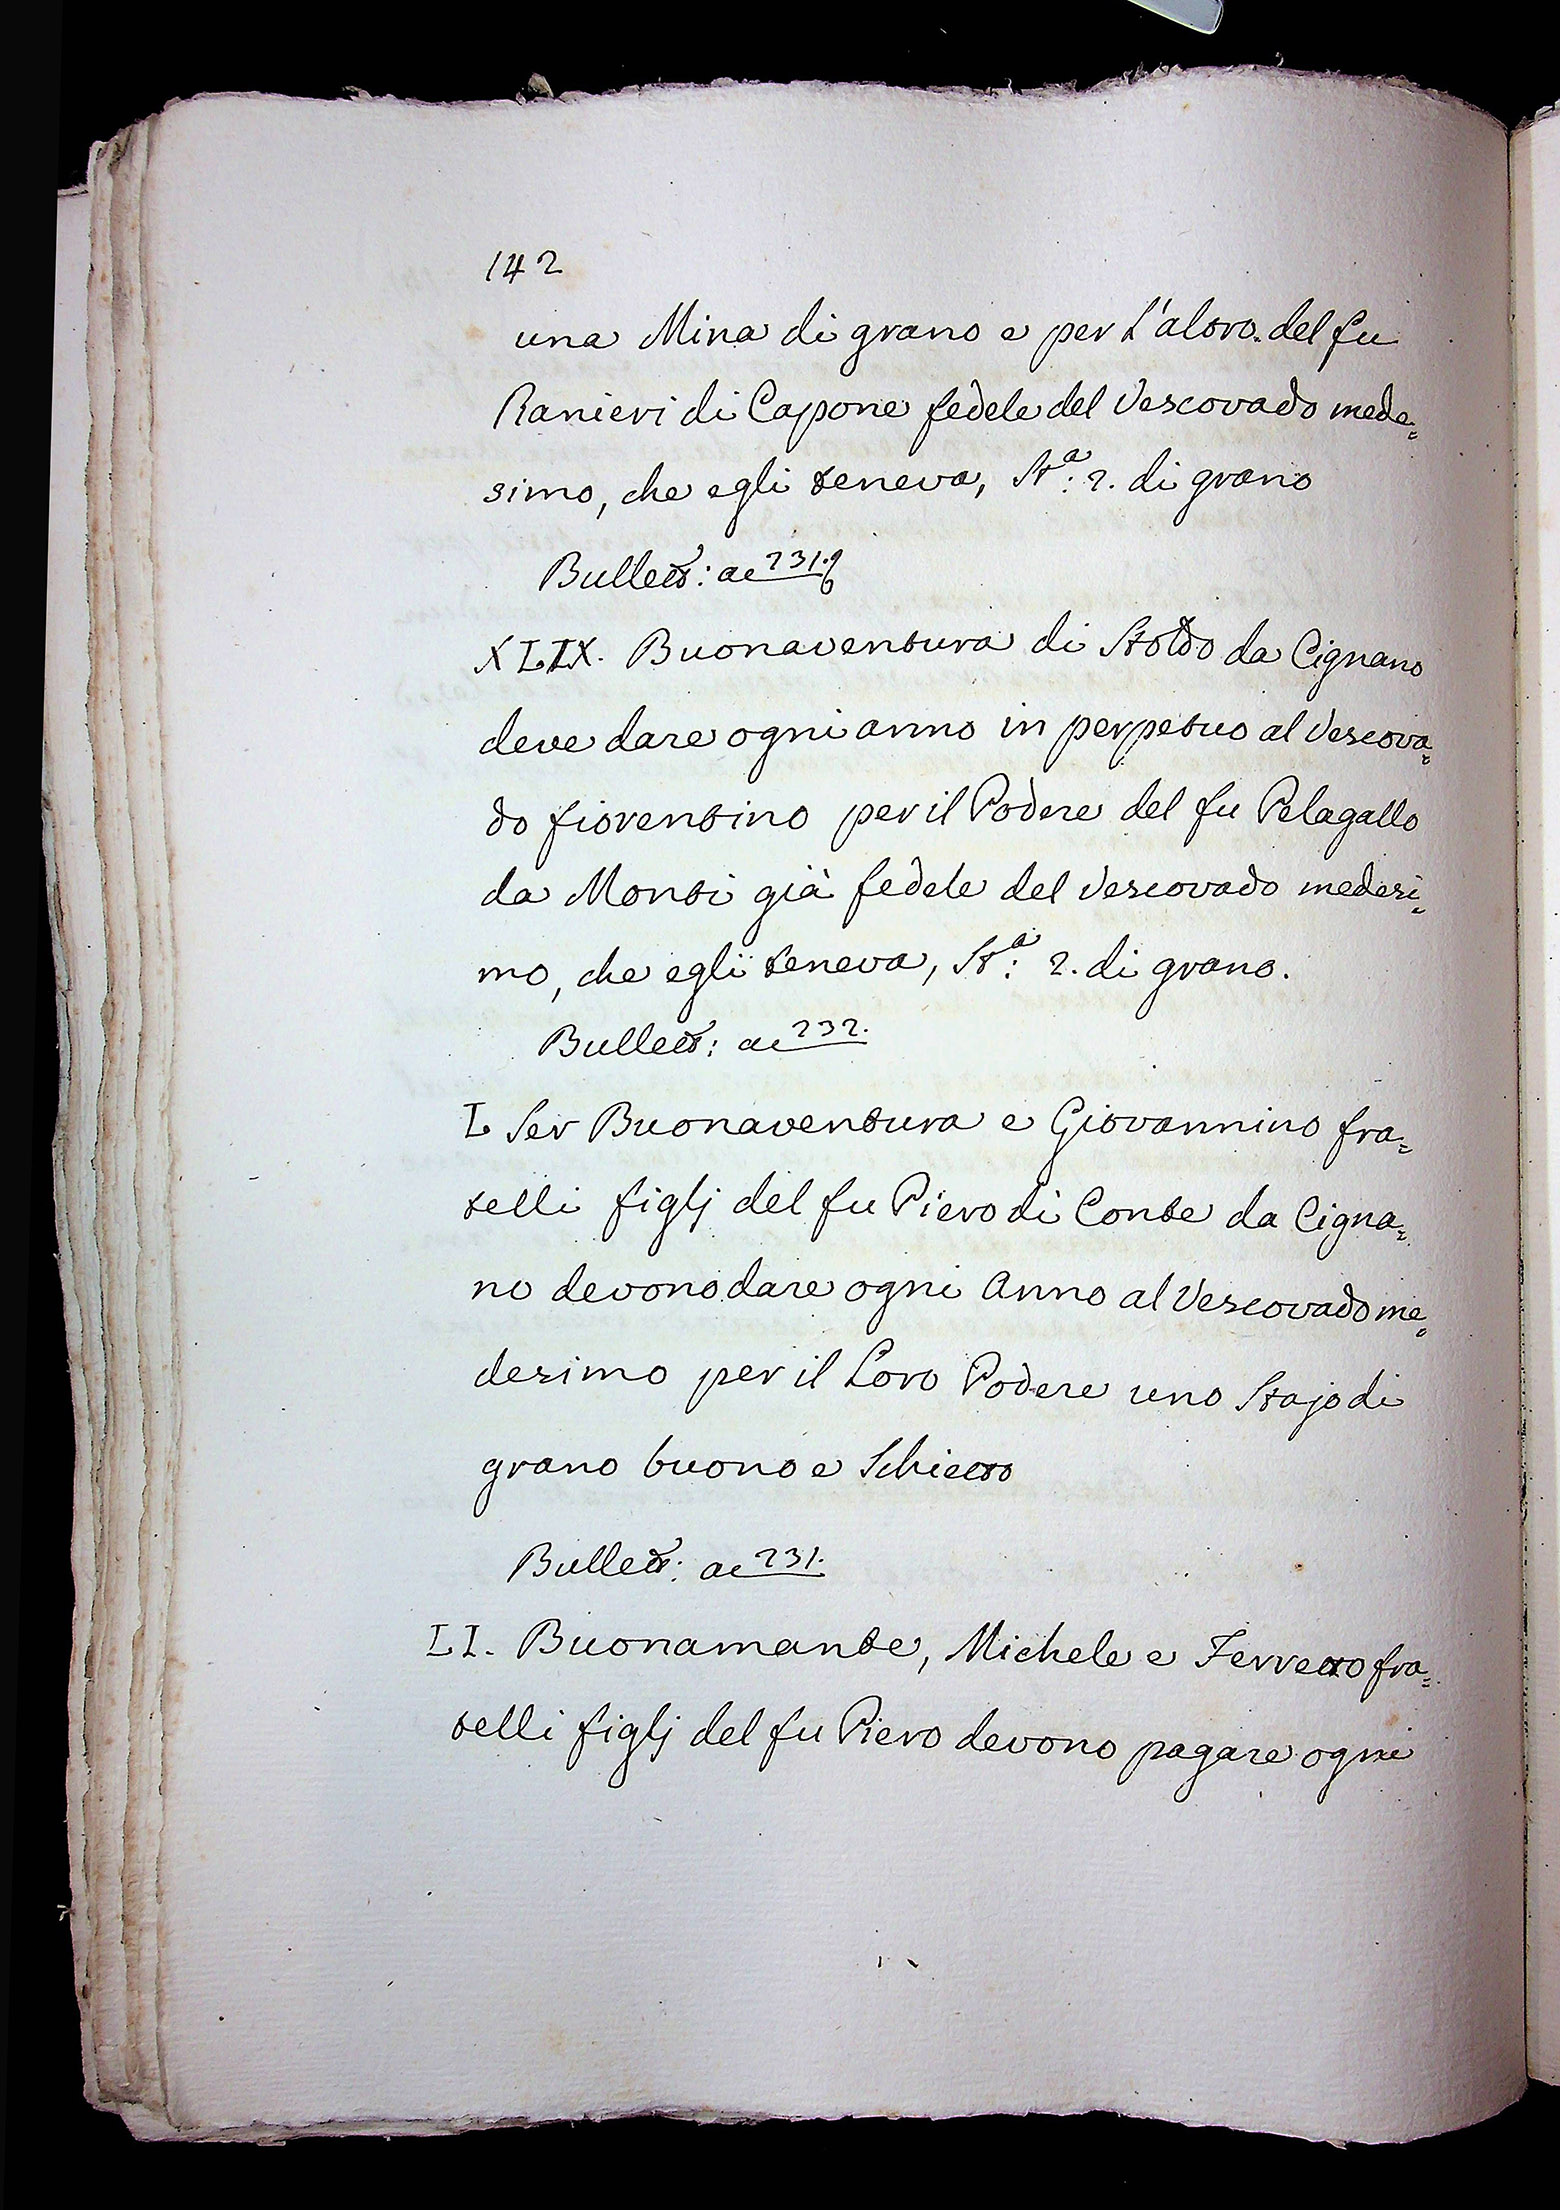 142
una Mina di grano e per L'altro. del fu
Ranieri di Capone fedele del Vescovado mede=
simo, che egli teneva, St:ª 2. di grano
Bullett: ac 231.
XLIX. Buonaventura di Stoldo da Cignano
deve dare ogni anno in perpetuo al Vescova=
do fiorentino per il Podere del fu Pelagallo
da Monti già fedele del Vescovado medesi=
mo, che egli teneva, St:ª 2. di grano.
Bullett: ac 232.
L Ser Buonaventura e Giovannino fra=
telli figlj del fu Piero di Conte da Cigna=
no devono dare ogni Anno al Vescovado me=
desimo per il Loro Podere uno Stajo di
grano buono e Schietto
Bullett: ac 231.
LI. Buonamante, Michele e Ferretto fra=
telli figlj del fu Piero devono pagare ogni